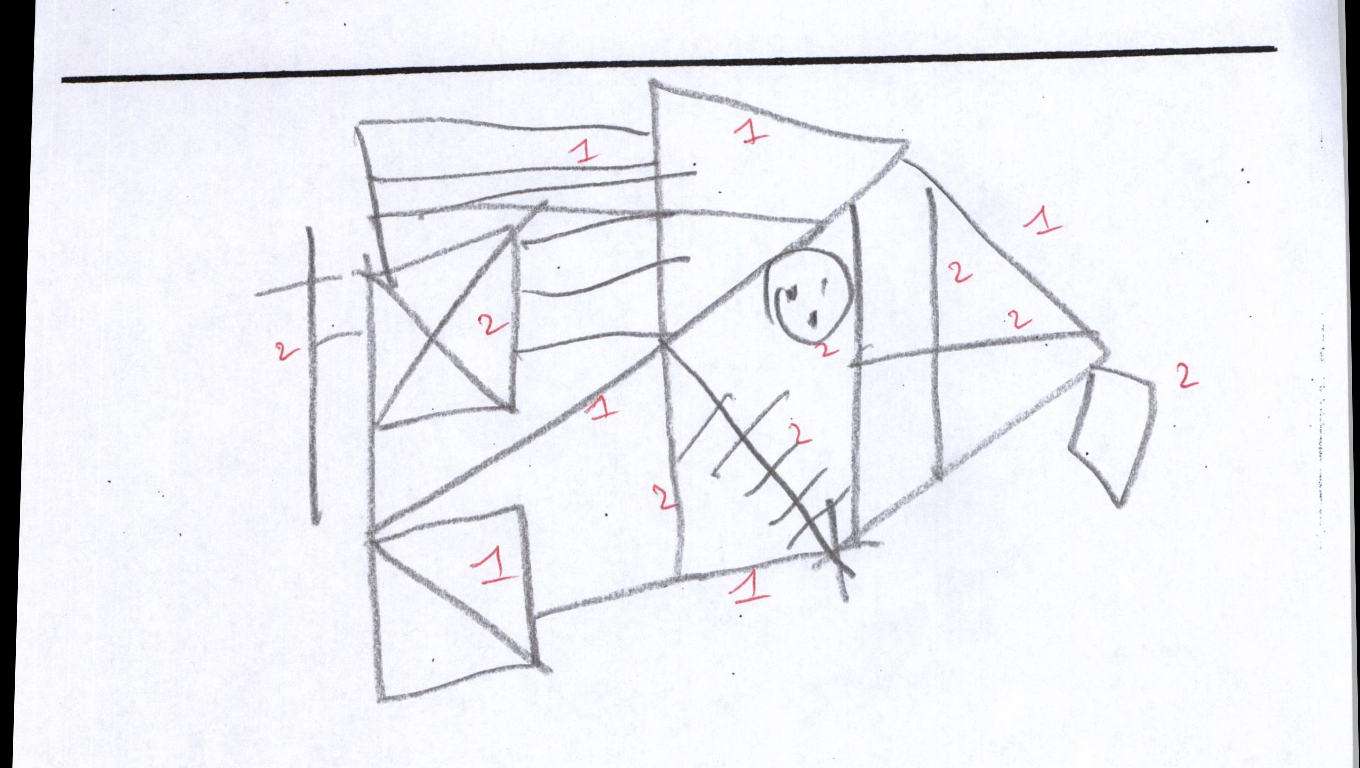 1
1
1
2
2
2
2
2
1
2
2
1
1